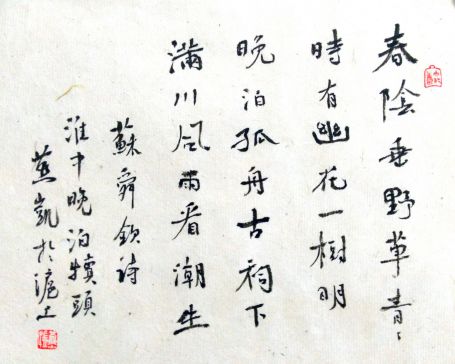 春陰垂野草青々
時有幽花一樹明
晚泊孤舟古祠下
滿川風雨看潮生
蘇舜欽詩
淮中晚泊犢頭
蕉凱於滬上